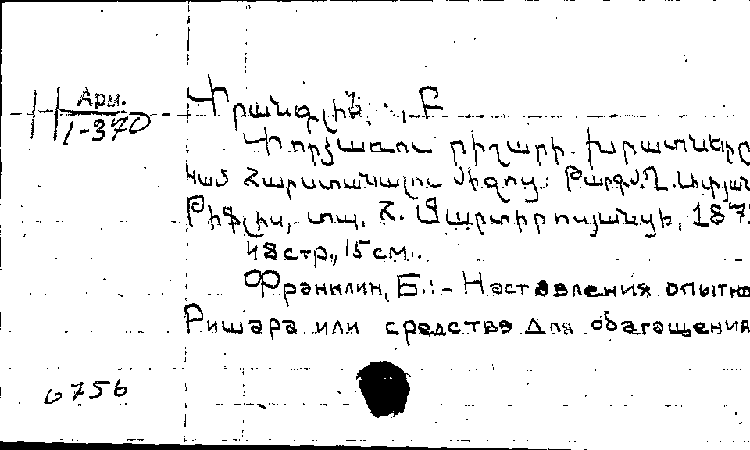 Арм.
H 1-370
Ֆրանգլին, Բ
Փորձառու րիշարի խրատները
կամ հարստանալու միջոց: Թարգմ.
Թիֆլիս, տպ. Հ. Մարտիրոսյանցի, 187
48 стр., 15 см.
Франклин, Б.:- Наставления опытно
Ришара или средства для обагащения
6756